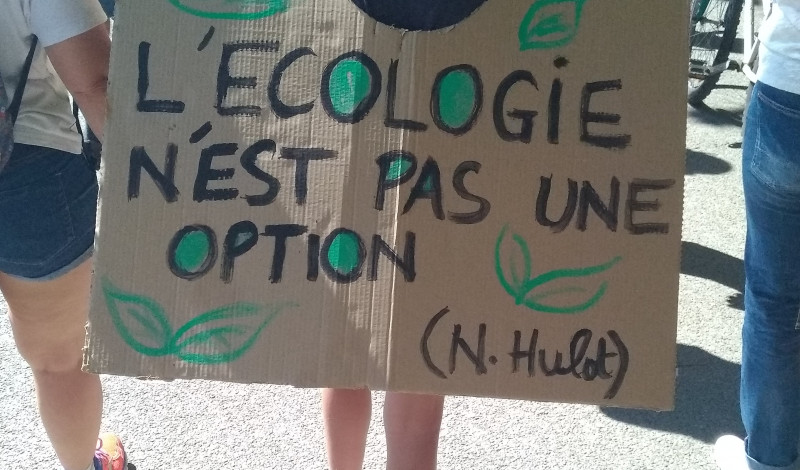 L'ÉCOLOGiE
N'ÉST PAS UNE
OPTiON
(N. Hulot)